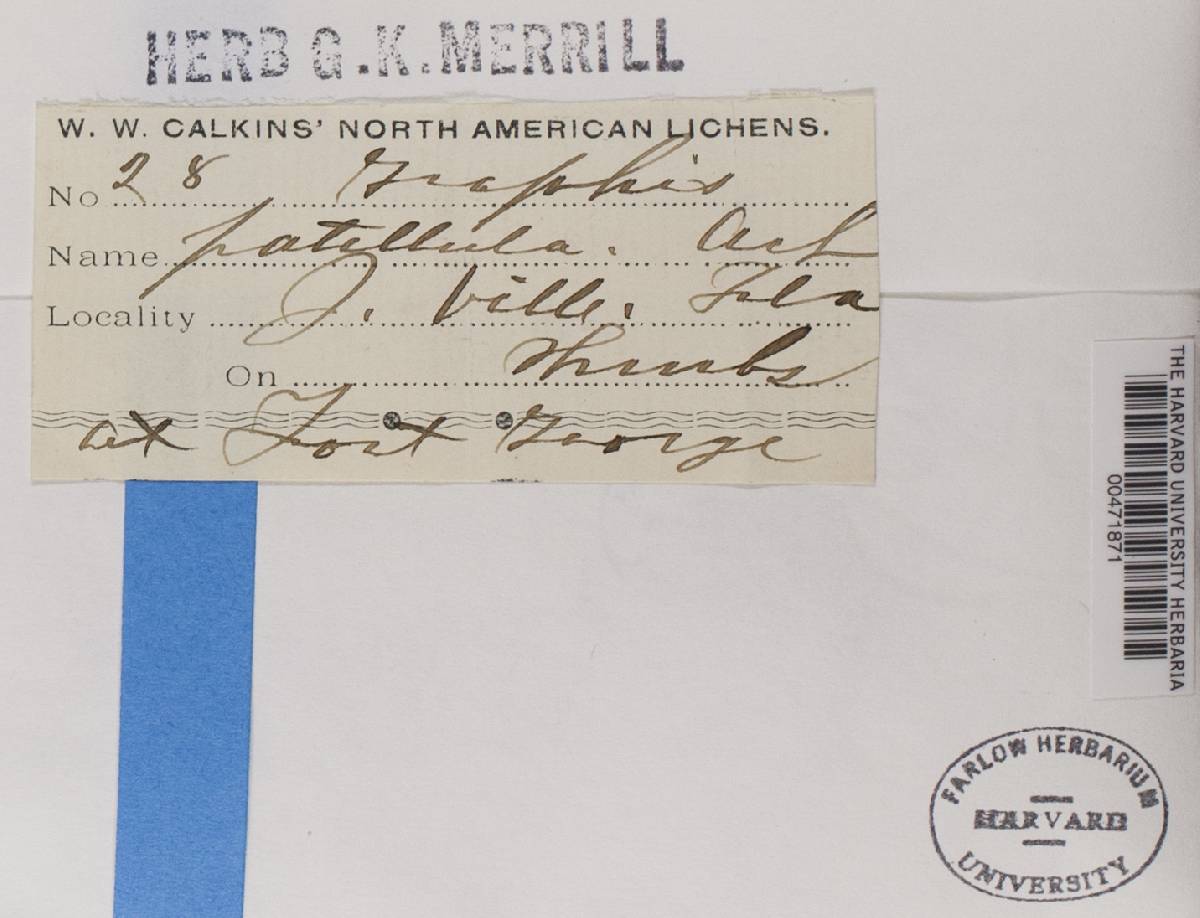 HERB G.K. MERRILL
W. W. CALKINS' NORTH AMERICAN LICHENS.
No 28 Graphis
Name patellula. Ach
Locality J. Ville. Fla
On Shrubs
at Fort George
THE HARVARD UNIVERSITY HERBARIA
00471871
FARLOW HERBARIUM
HARVARD
UNIVERSITY